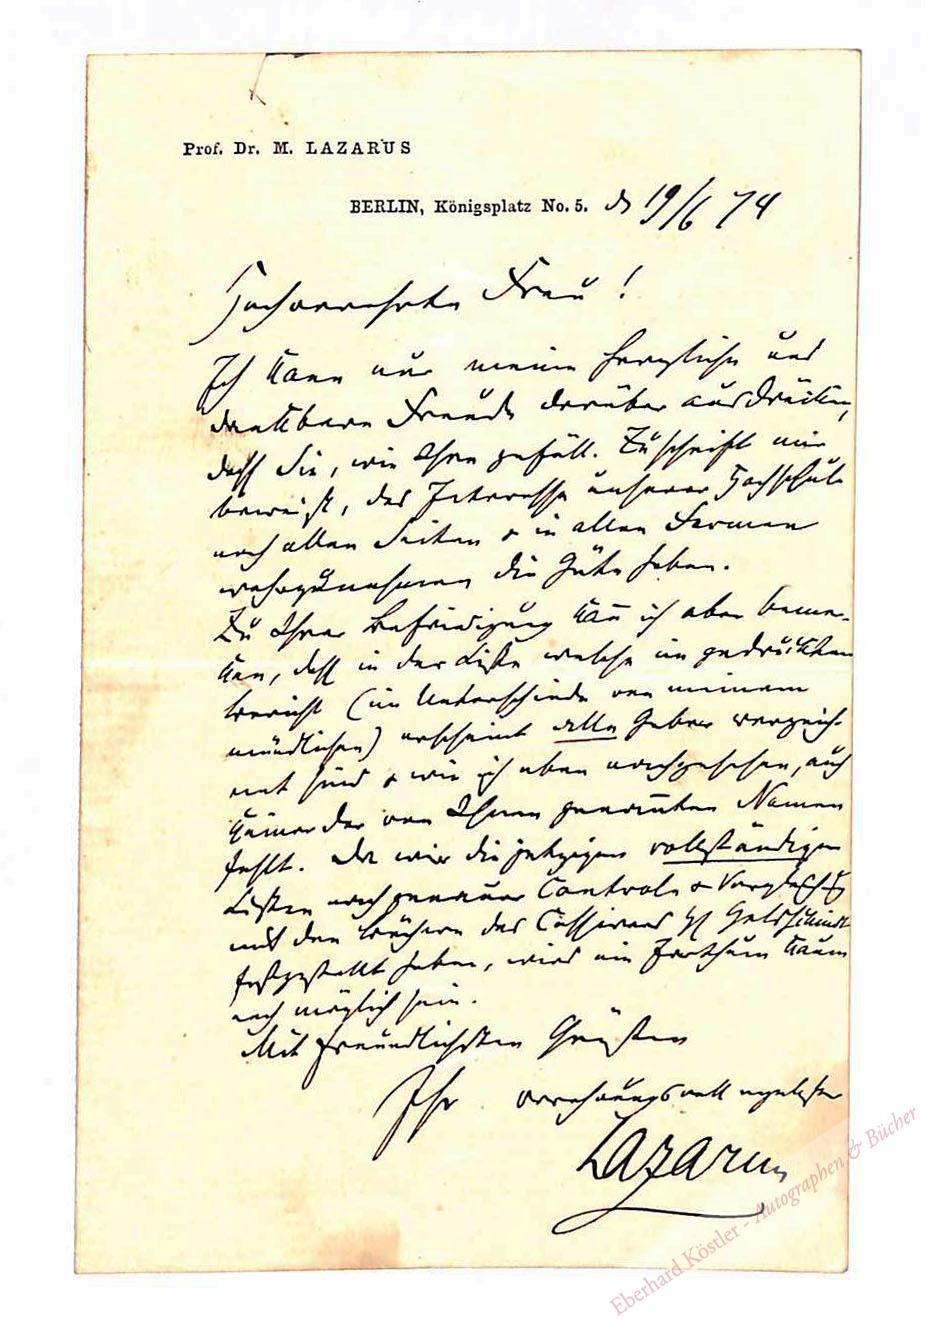 Prof. Dr. M. LAZARUS
BERLIN, Königsplatz No. 5. d 19/6 74
Hochverehrte Frau!
Ich kann nur meine herzliche und
dankbare Freude darüber ausdrücken,
daß Sie, wie Ihre gefäll. Zuschrift mir
beweist, das Interesse unserer Hochschule
nach allen Seiten & in allen Formen
wahrzunehmen die Güte haben.
Zu Ihrer Befriedigung kann ich aber bemer-
ken, daß in der Liste welche im gedruckten
Bericht (im Unterschiede von meinem
mündlichen) erscheint alle Geber verzeich-
net sind & wie ich eben nachgesehen, auch
keiner der von Ihnen genannten Namen
fehlt. Da wir die jetzigen vollständigen
Listen nach genauer Controle & Vergleich
mit den Büchern des Cassirers H Goldschmidt
festgestellt haben, wird ein Irrthum kaum
noch möglich sein.
Mit freundlichsten Grüßen
Ihr verehrungsvoll ergebenster
Lazarus
Eberhard Köstler - Autographen & Bücher